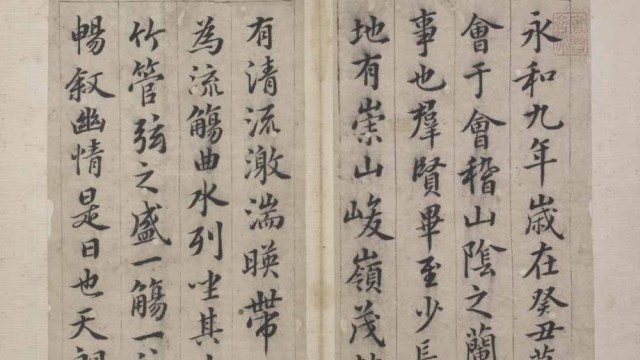 永和九年歲在癸丑
會于會稽山陰之蘭
事也羣賢畢至少長
地有崇山峻嶺茂
有清流激湍暎帶
為流觴曲水列坐其
竹管弦之盛一觴一
暢敘幽情是日也天